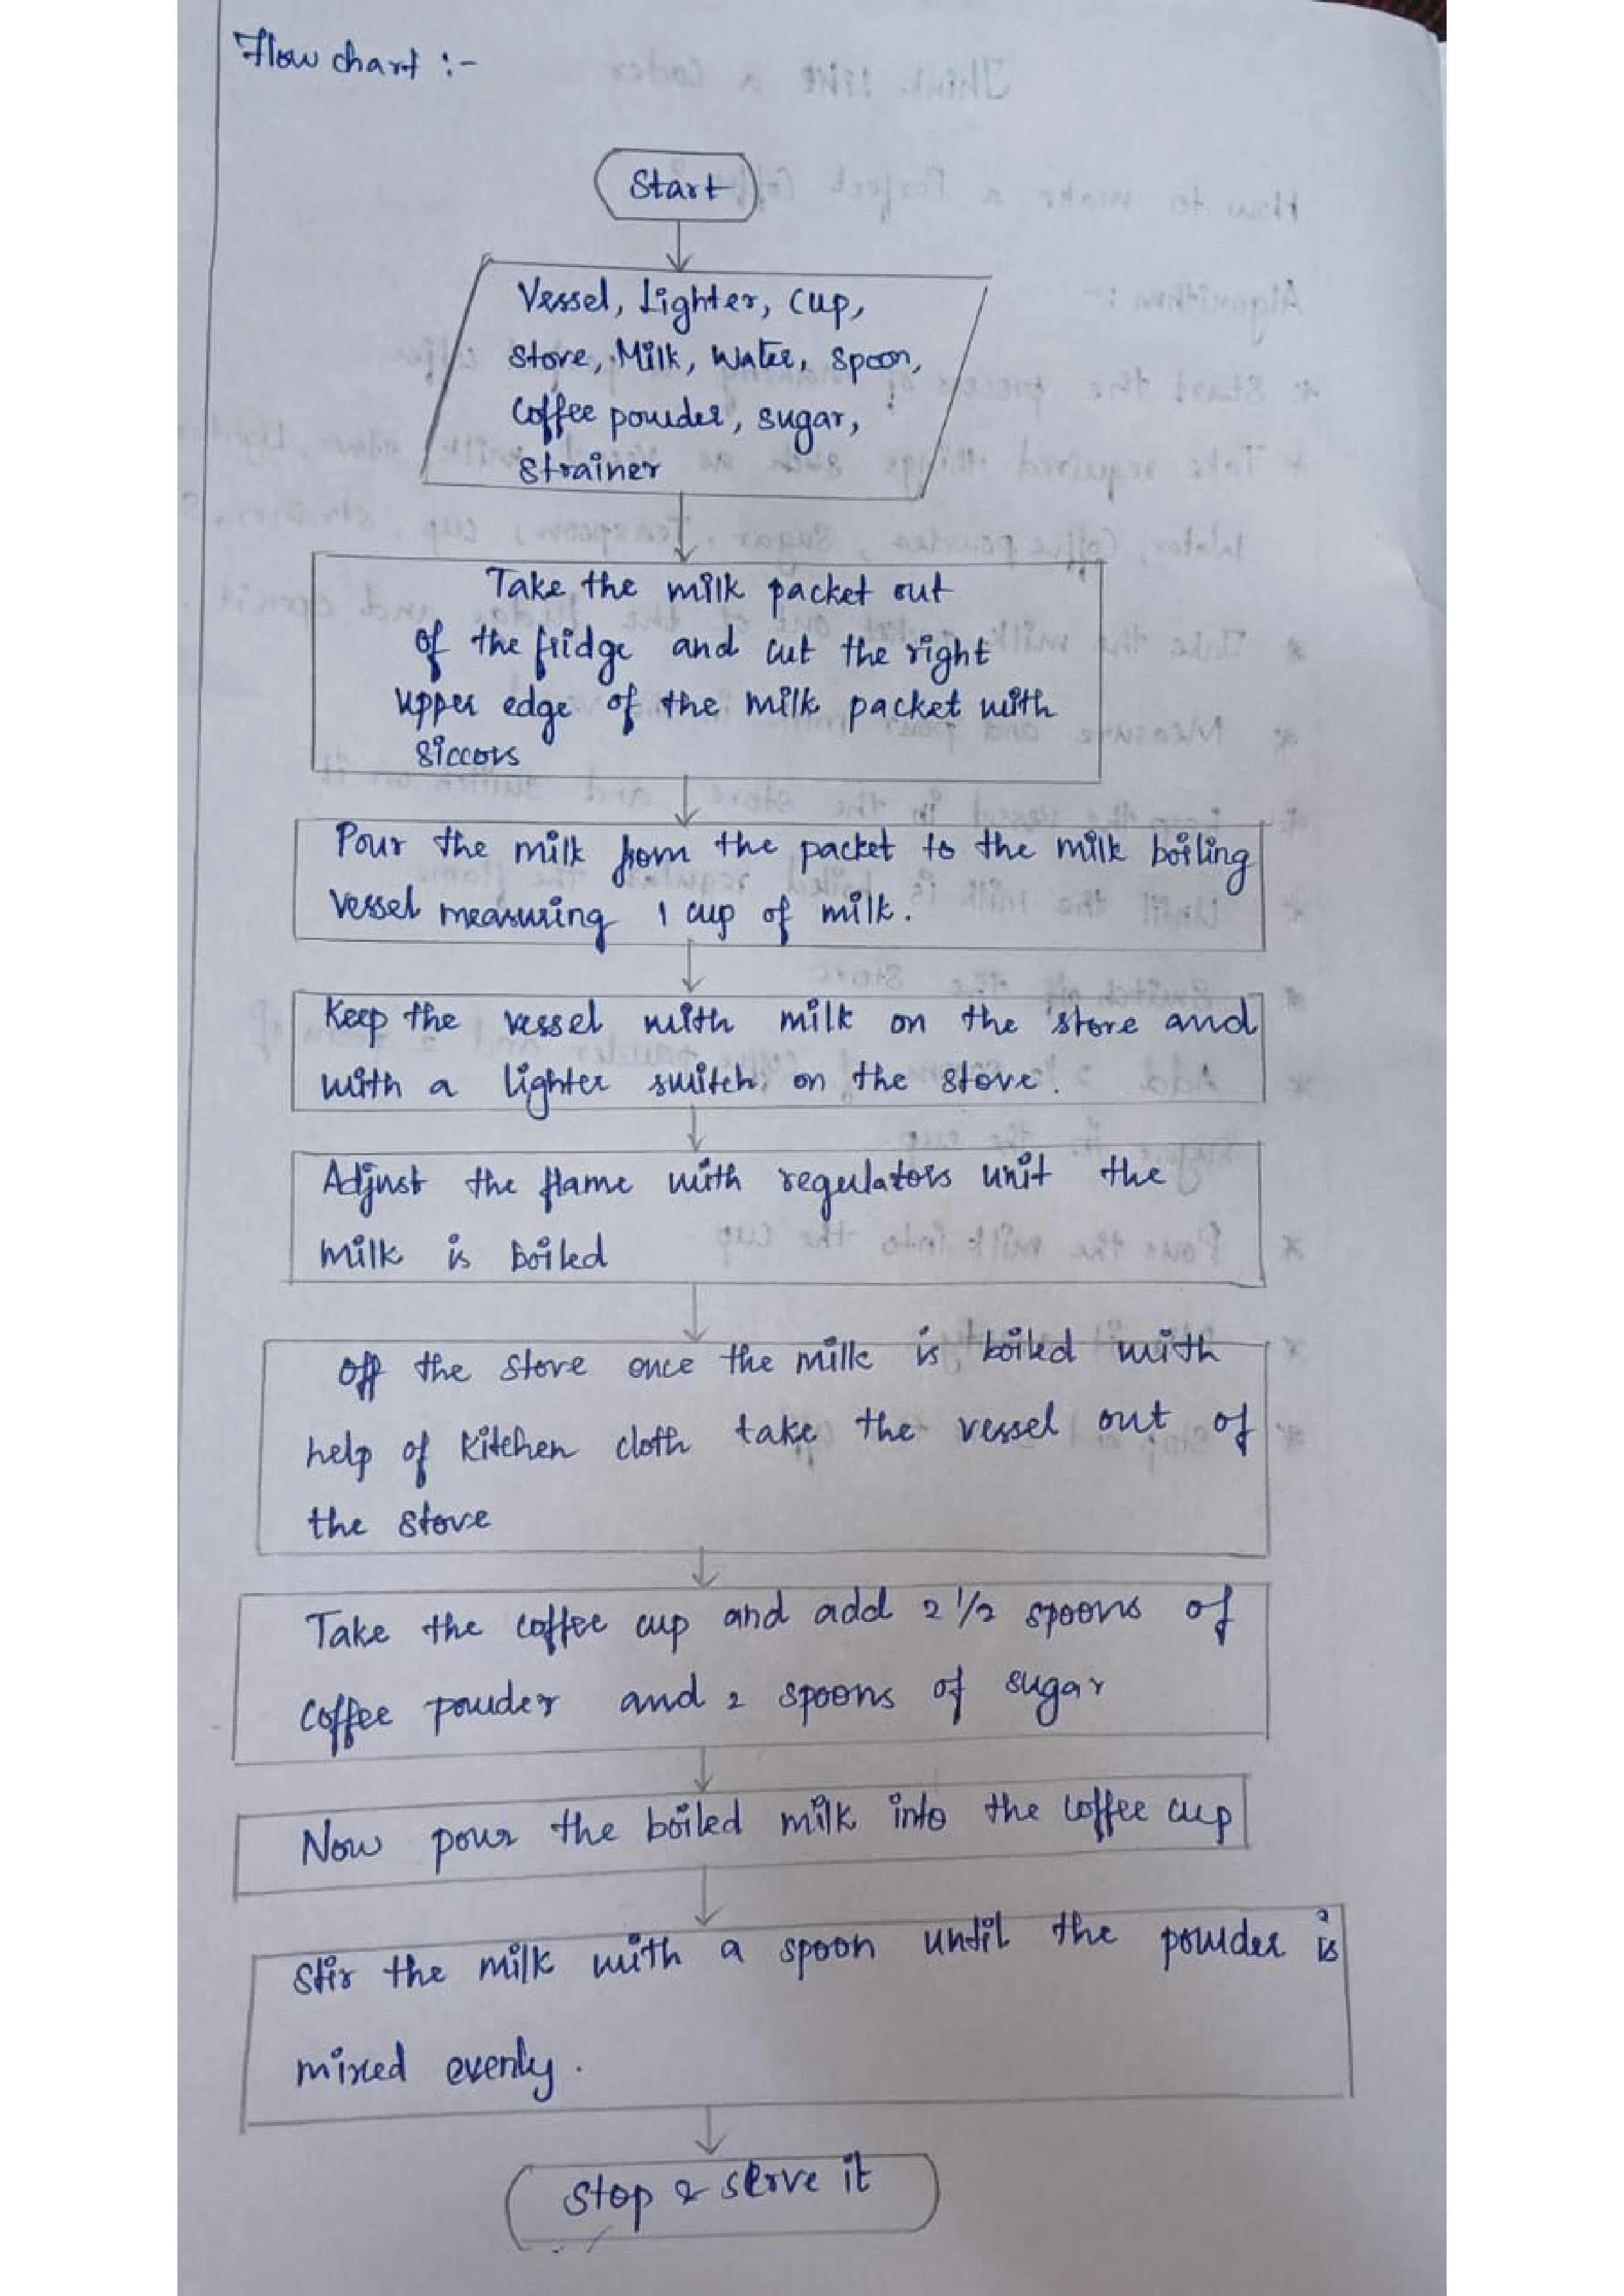 Flow chart :-
Start
Vessel, Lighter, Cup,
stove, Milk, Water, spoon,
Coffee powder, sugar,
strainer
Take the milk packet out
of the fridge and cut the right
upper edge of the milk packet with
siccors
Pour the milk from the packet to the milk boiling
vessel measuring 1 cup of milk.
Keep the vessel with milk on the stove and
with a lighter switch on the stove.
Adjust the flame with regulators unit the
milk is boiled
Off the stove once the milk is boiled with
help of kitchen cloth take the vessel out of
the stove
Take the coffee cup and add 2 1/2 spoons of
coffee powder and 2 spoons of sugar
Now pour the boiled milk into the coffee cup
Stir the milk with a spoon until the powder is
mixed evenly.
Stop & serve it